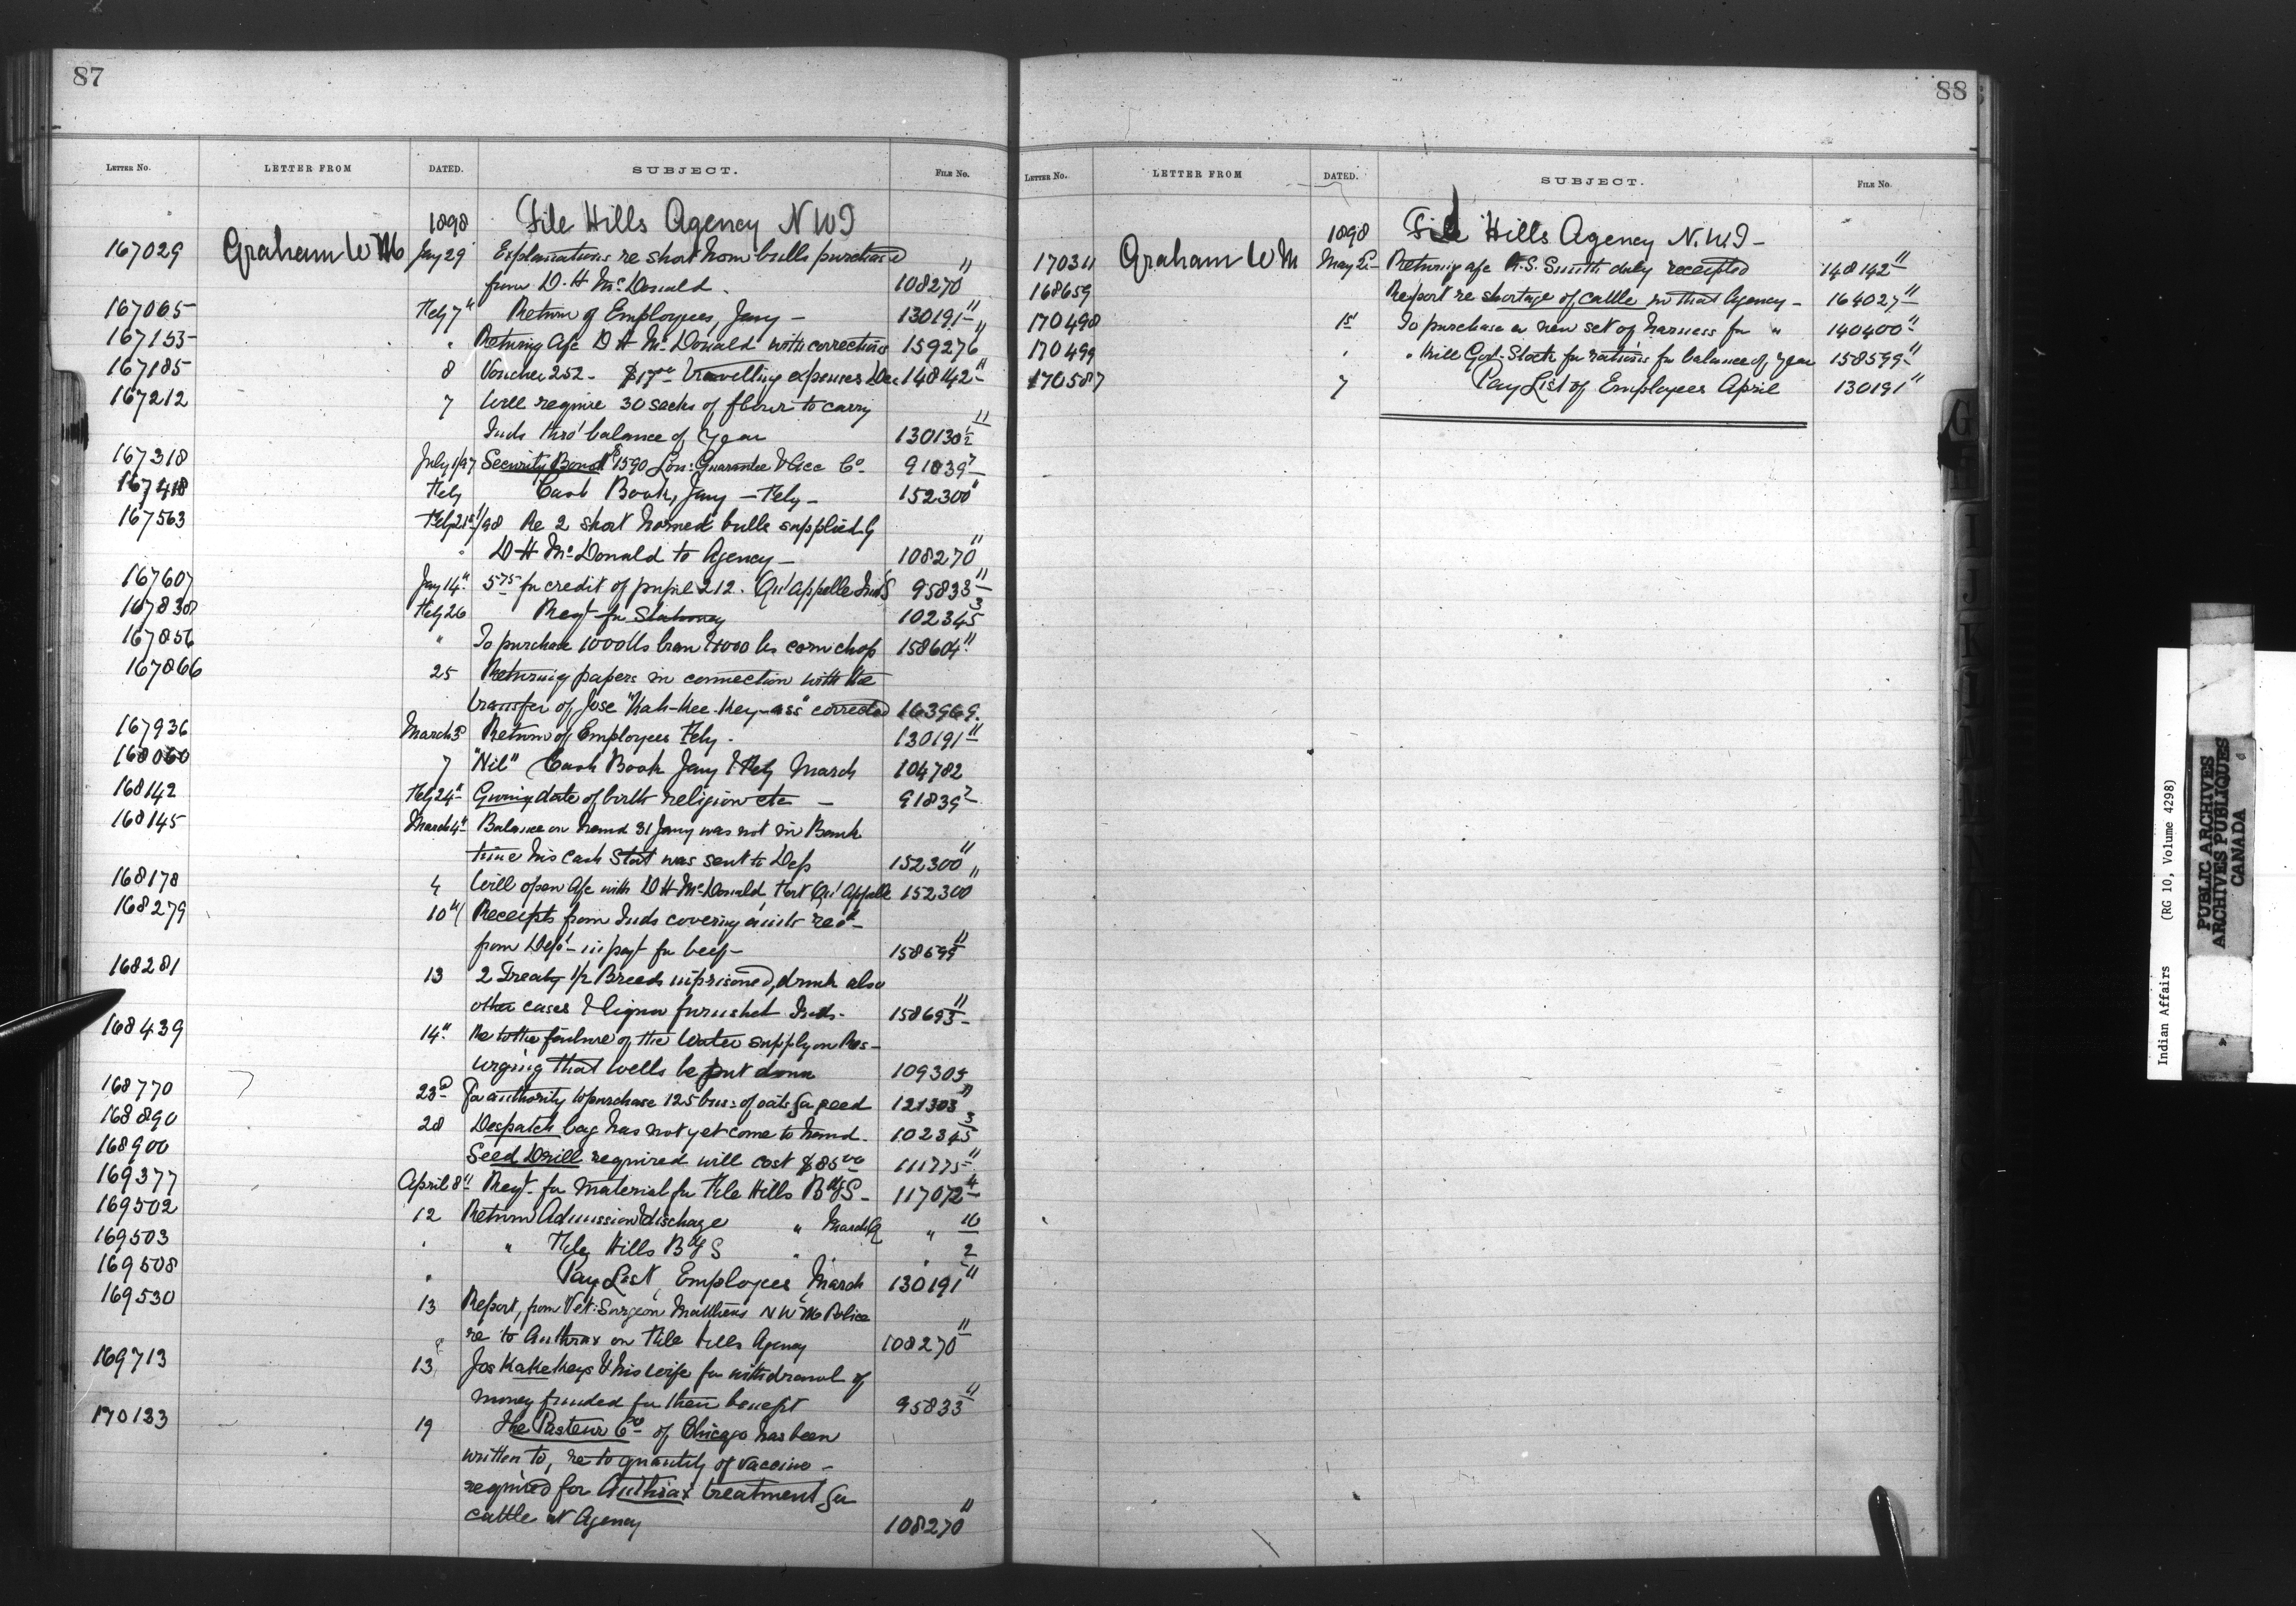 87
LETTER NO. LETTER FROM DATED. SUBJECT. FILE No.
1898 File Hills Agency N W T
167029 Graham W M Jany 29 Explanations re short horn bulls purchased
from D. H. McDonald. 108270 11
167065 Feby 7th Return of Employees, Jany — 130191 11
167153 " Returning A/c D H McDonald with corrections 159276 11
167185 8 Voucher 252 - $17.00 Travelling expenses Dec 148142 11
167212 7 Will require 30 sacks of flour to carry
Inds thro' balance of year 130130 1/2 11
167318 July 1/97 Security Bond 1590 Lon: Guarantee & Acc Co. 91839 7
167418 Feby Cash Book, Jany — Feby — 152300 11
167563 Feby 21st/98 Re 2 short horned bulls supplied by
D H McDonald to Agency — 108270 11
167607 Jany 14th 5.75 for credit of pupil 212. Qu'Appelle Ind S 95833 11
167838 Feby 26 Reqt for Stationery 102345 3
167856 " To purchase 1000 lbs bran & 1000 lbs corn chop 158604 11
167866 25 Returning papers in connection with the
transfer of Jose "Kah-kee-key-ass" corrected 163969.
167936 March 3d Return of Employees Feby. 130191 11
168060 7 "Nil" Cash Book Jany & Feby March 104782
168142 Feby 24th Giving date of birth religion etc — 91839 7
168145 March 4th Balance on hand 31 Jany was not in Bank
time his Cash Stat was sent to Dep 152300 11
168178 4 Will open A/c with D H McDonald Fort Qu'Appelle 152300 11
168279 10th Receipts from Inds covering amts recd
from Dept — in payt for beef — 158599 11
168281 13 2 Treaty 1/2 Breeds imprisoned, drunk also
other cases & liquor furnished Inds. 158693 11
168439 14th Re to the failure of the Water supply on Res —
urging that wells be put down 109305
168770 23d For authority to purchase 125 bus: of oats for feed 121303 11
168890 28 Despatch bag has not yet come to hand. 102345 3
168900 Seed Drill required will cost $85.00 111775 11
169377 April 8th Reqt. for material for File Hills Bdg S — 117072 4
169502 12 Return Admission & discharge " March Qr " 16
169503 " " File Hills Bdg S " " 2
169508 " Pay List, Employees, March 130191 11
169530 13 Report, from Vet: Surgeon Matthews N W M Police
re to Anthrax on File Hills Agency 108270 11
169713 13 Jos Kakekeys & his wife for withdrawal of
money funded for their benefit 95833 11
170133 19 The Pasteur Co of Chicago has been
written to, re to quantity of vaccine —
required for Anthrax treatment for
cattle at Agency 108270 11
88
LETTER NO. LETTER FROM DATED. SUBJECT. FILE No.
1898 File Hills Agency N.W.T —
170311 Graham W M May 2d Returning a/c R. S. Smith duly receipted 148142 11
168659 Report re shortage of cattle in that Agency — 164027 11
170498 1st To purchase a new set of harness for " 140400 11
170499 " " Kill Govt. Stock for rations for balance of year 158599 11
170587 7 Pay List of Employees April 130191 11
G
I
J
K
L
M
Indian Affairs (RG 10, Volume 4298)
PUBLIC ARCHIVES
ARCHIVES PUBLIQUES
CANADA